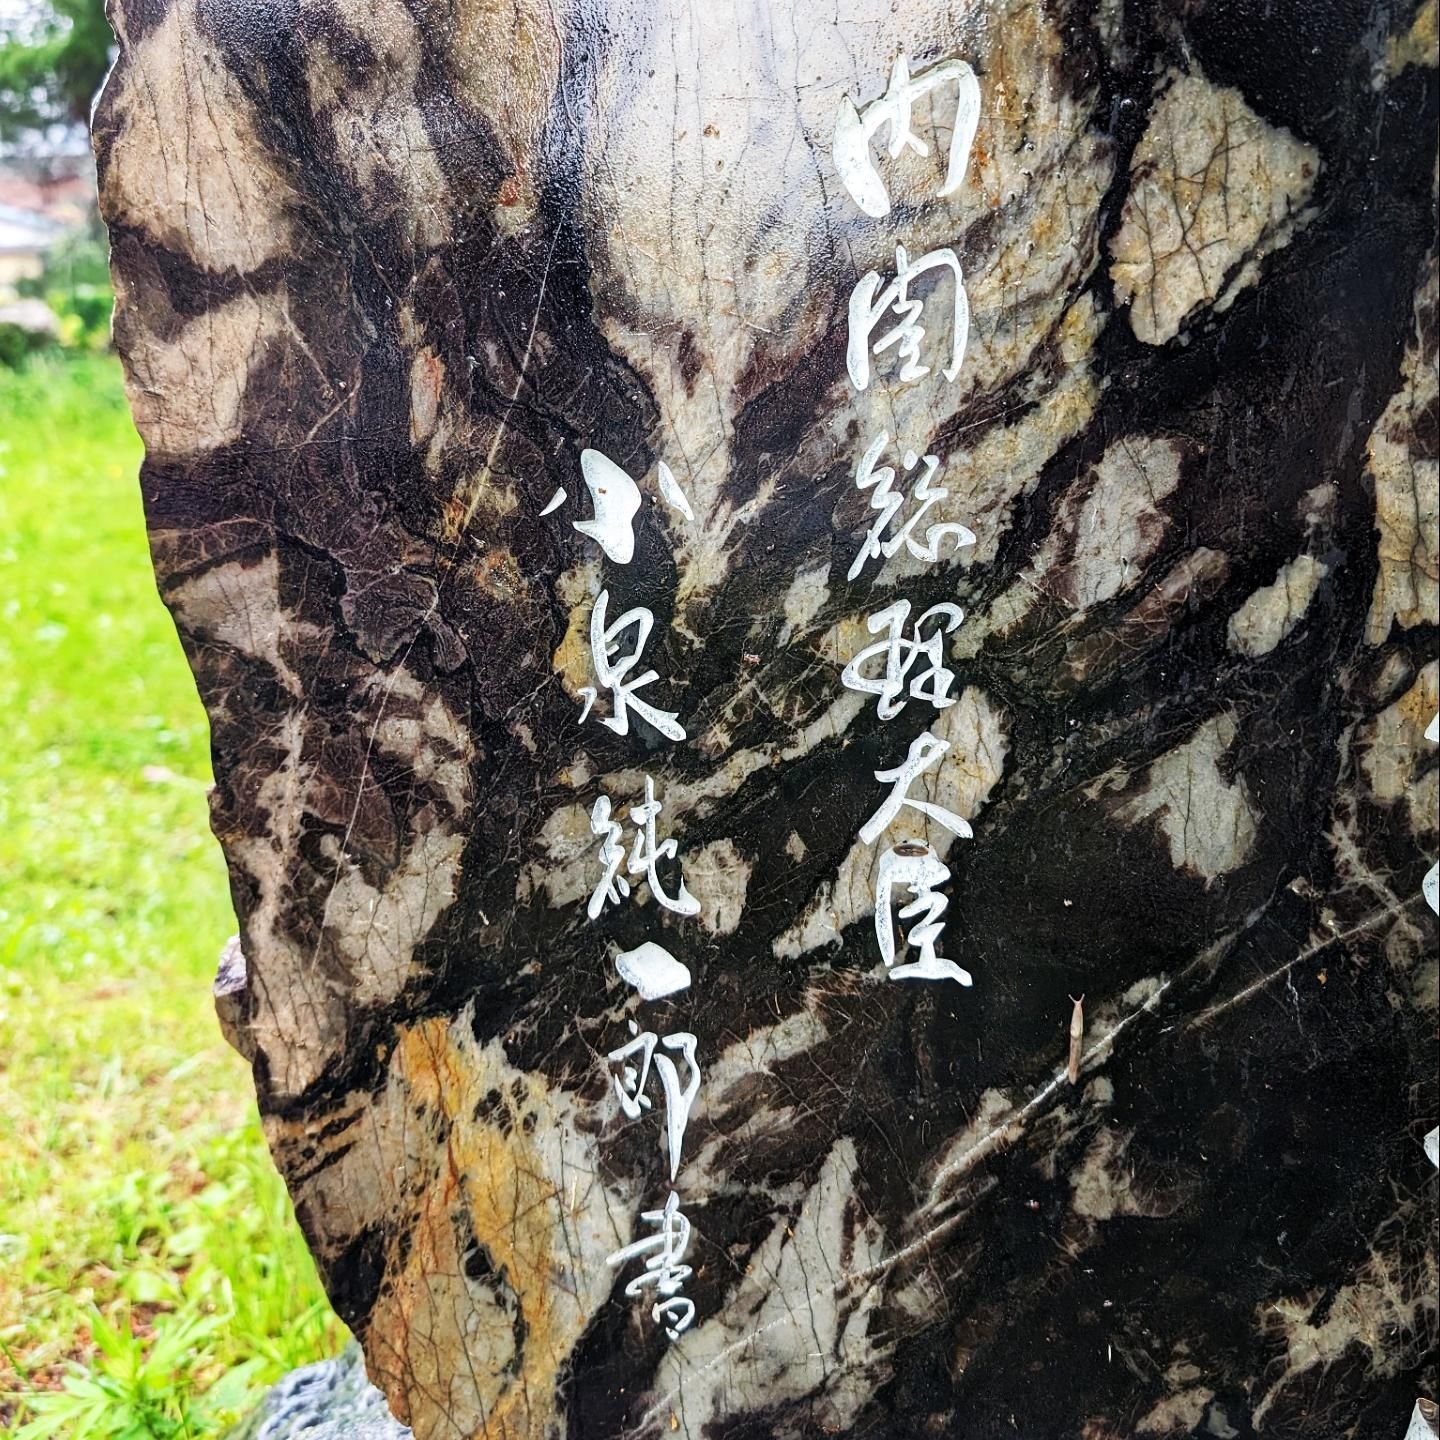 内閣総理大臣
小泉純一郎書